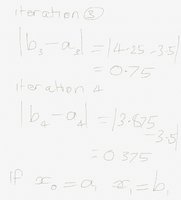 iteration ③
|b₃-a₃| = |4.25-3.5|
= 0.75
iteration 4
|b₄-a₄| = |3.875-3.5|
= 0.375
if x₀=a, x₁=b,